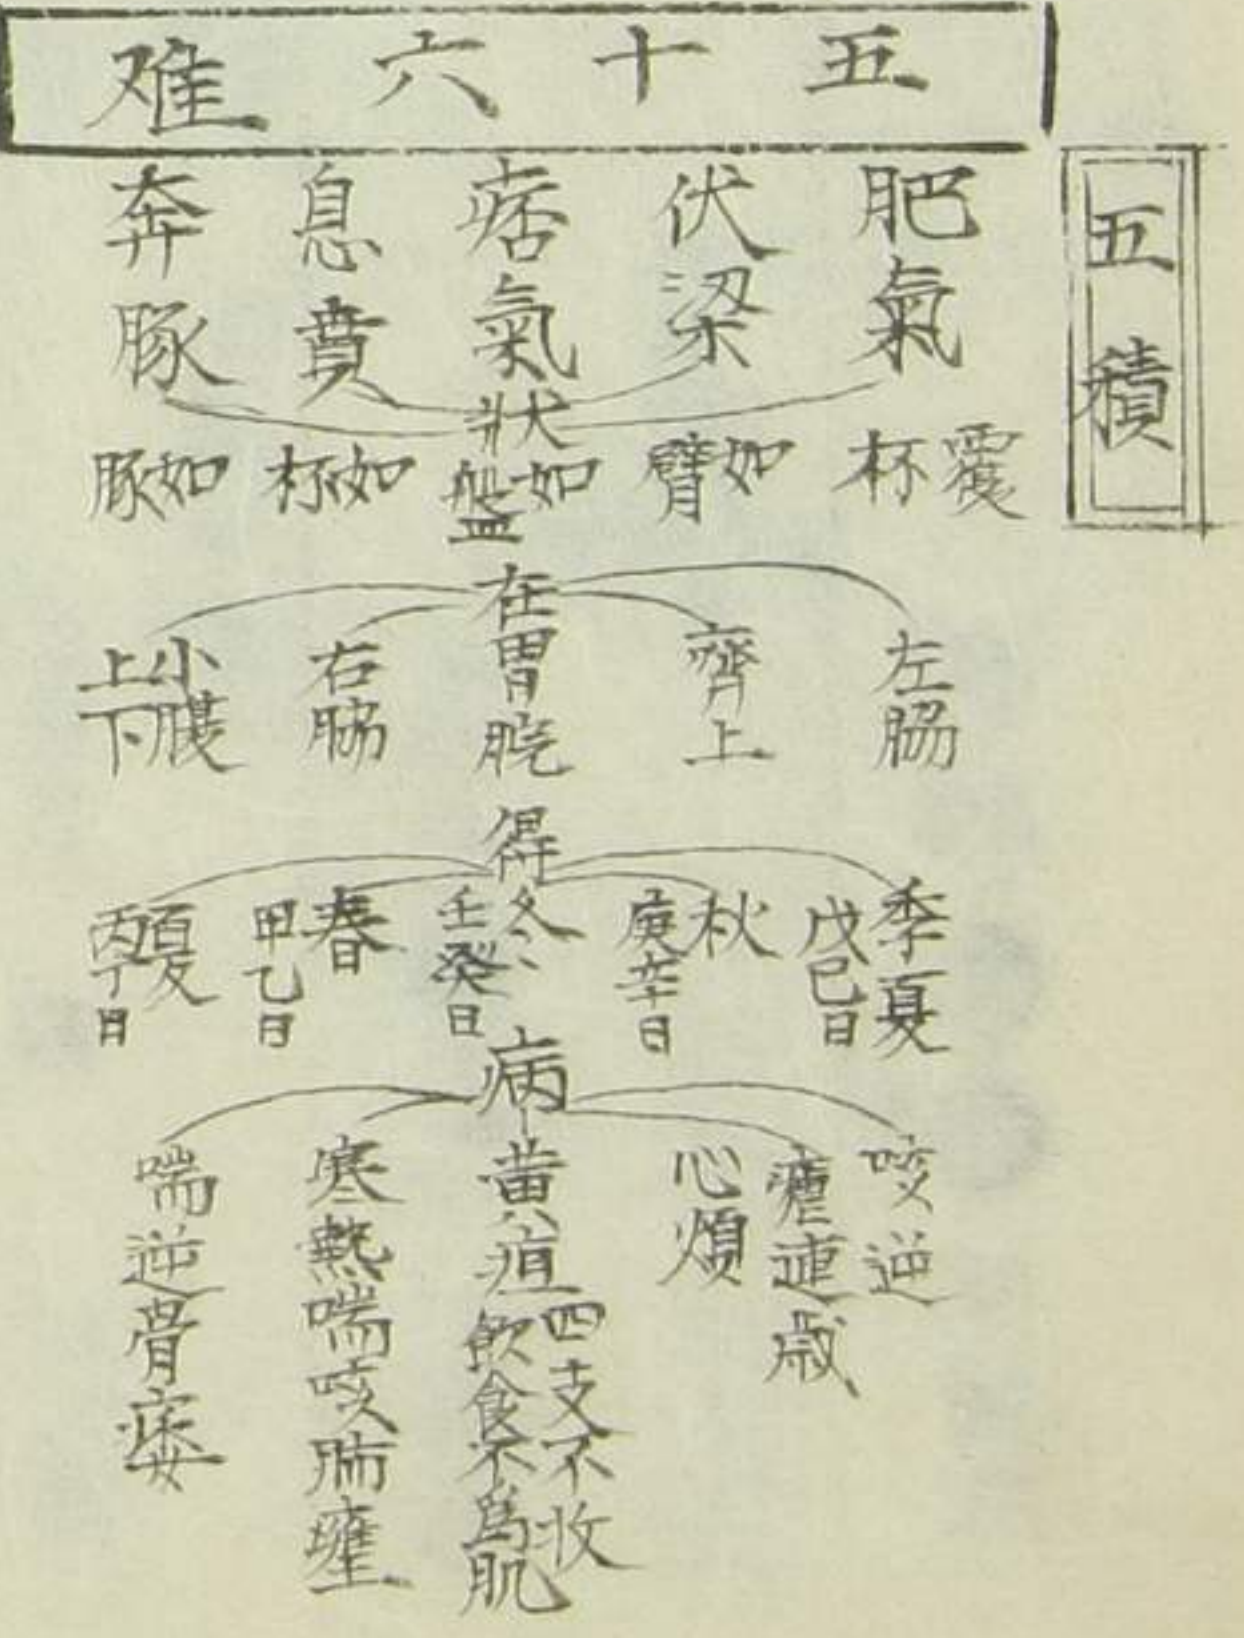 五十六难
五積
肥氣
伏梁
痞氣
息賁
奔豚
狀
覆杯
如臂
如盤
如杯
如豚
在
左脇
齊上
胃脘
右脇
小腹上下
得
季夏
戊己日
秋
庚辛日
冬
壬癸日
春
甲乙日
夏
丙丁日
病
咳逆
瘧連歲
心煩
黄疸
四支不收
飲食不爲肌
寒熱喘咳肺壅
喘逆骨痿